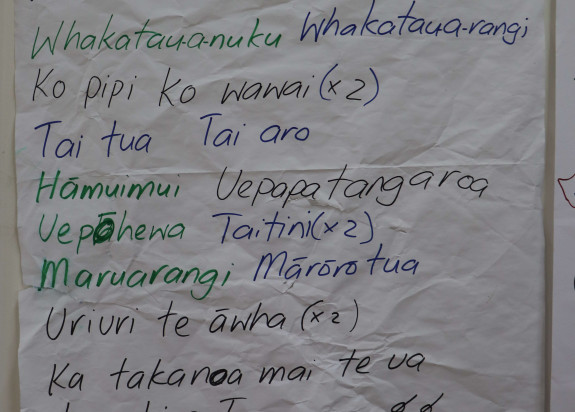 Whakataua-nuku Whakataua-rangi
Ko pipi ko wawai (x2)
Tai tua Tai aro
Hāmuimui Uepapatangaroa
Uepōhewa Taitini (x2)
Maruarangi Mārōrōtua
Uriuri te āwha (x2)
Ka takanoa mai te ua